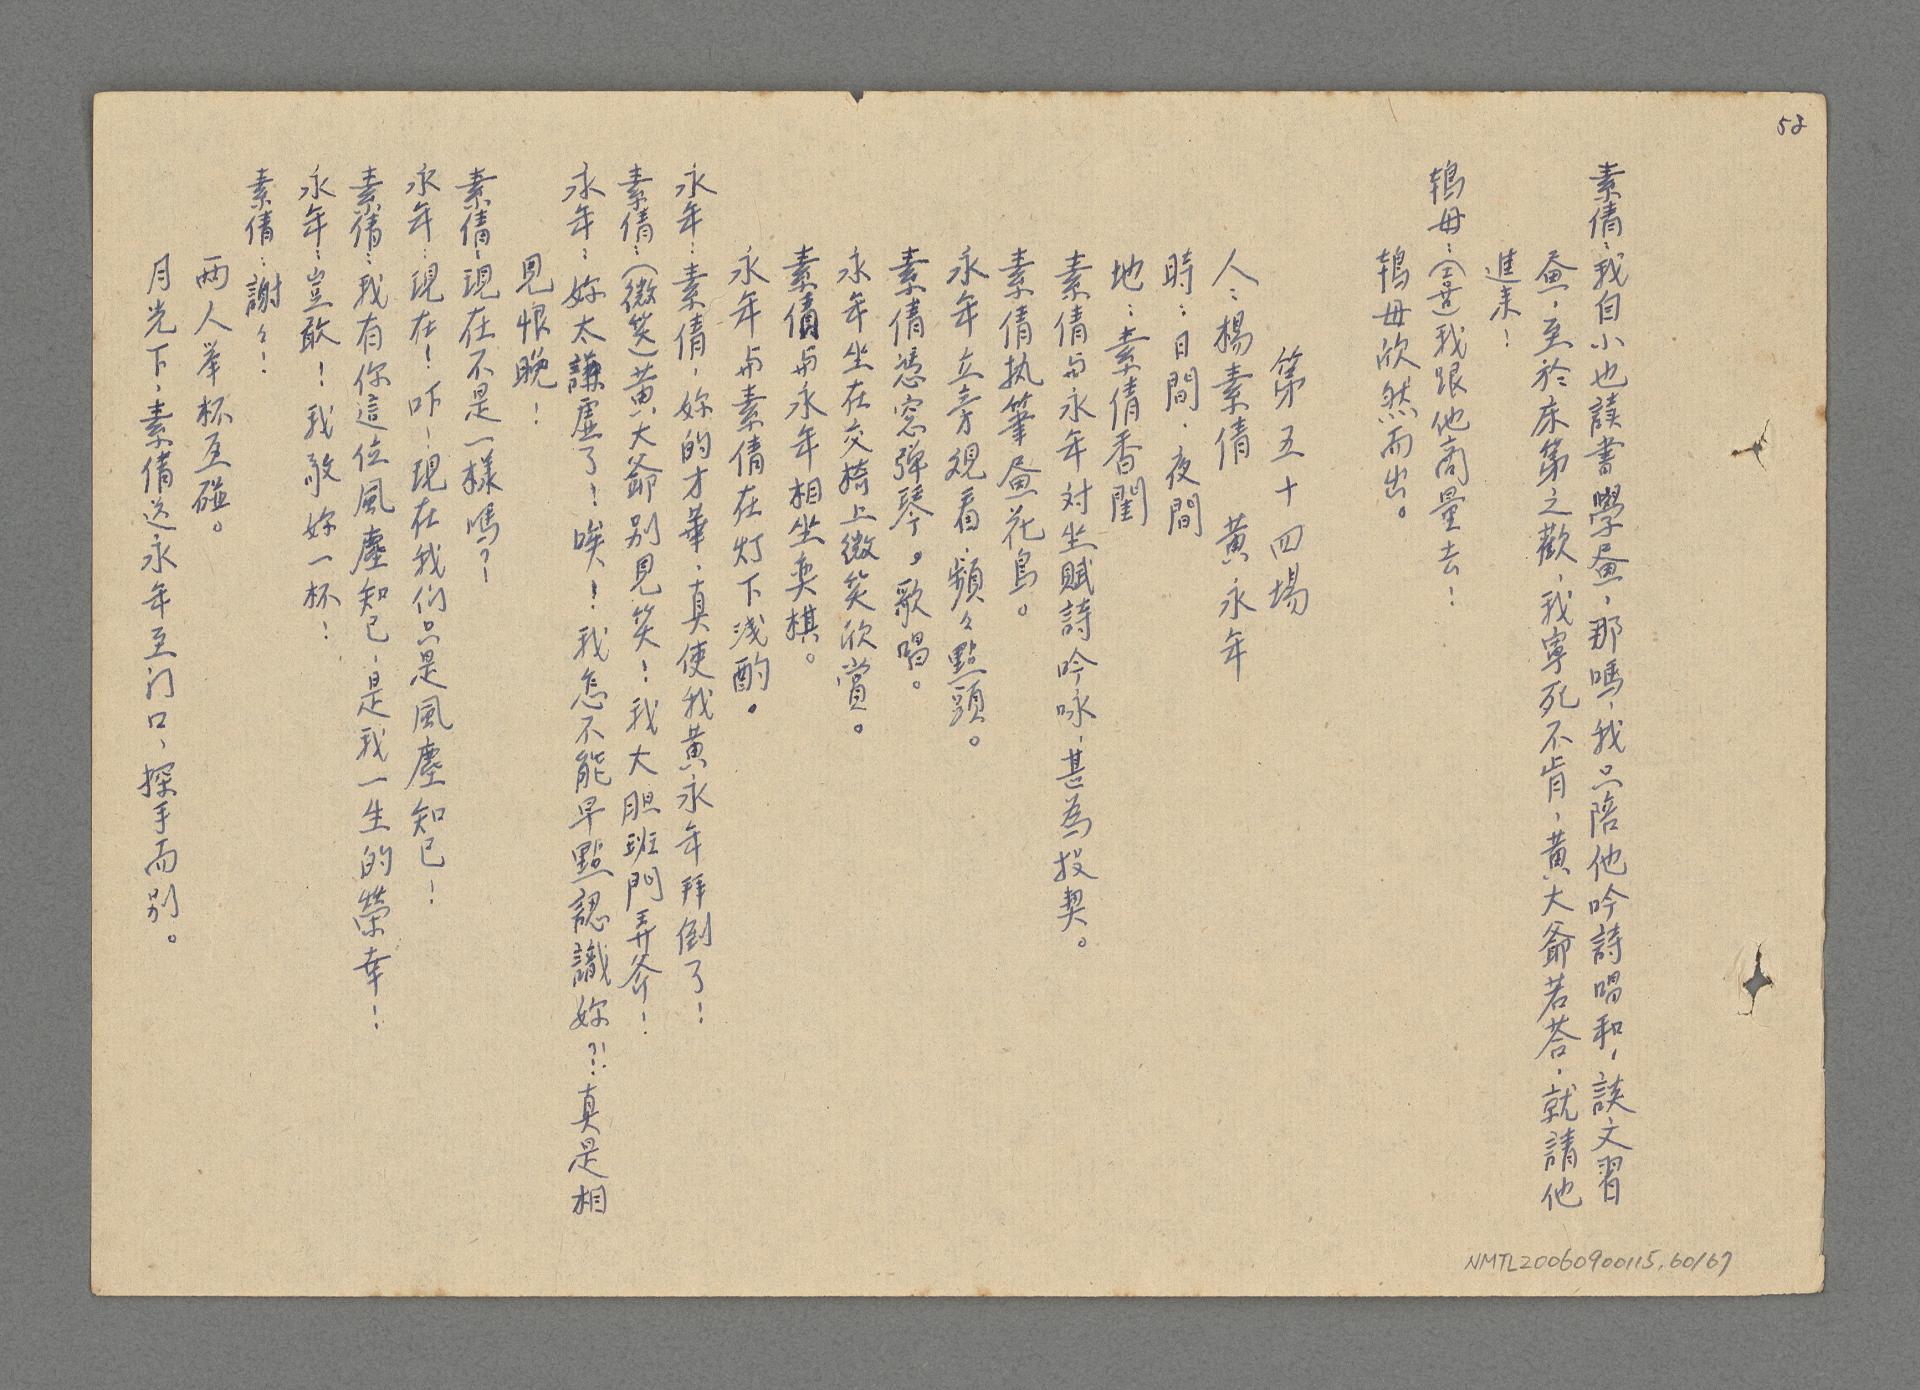 58
素倩：我自小也讀書學畫，那嗎，我只陪他吟詩唱和，談文習
畫，至於床第之歡，我寧死不肯，黃大爺若荅，就請他
進來！
鴇母：（喜）我跟他商量去！
鴇母欣然而出。
第五十四場
人：楊素倩 黃永年
時：日間．夜間
地：素倩香閨
素倩与永年对坐賦詩吟咏，甚為投契。
素倩执筆畫花鳥。
永年立旁观看，頻々點頭。
素倩憑窓弹琴。歌唱。
永年坐在交椅上微笑欣賞。
素倩与永年相坐奕棋。
永年与素倩在灯下浅酌。
永年：素倩，妳的才華，真使我黃永年拜倒了！
素倩：（微笑）黃大爺别見笑！我大胆班門弄斧！
永年：妳太謙虛了！唉！我怎不能早點認識妳？！真是相
見恨晚！
素倩：現在不是一樣嗎？！
永年：現在！吓！現在我们只是風塵知已！
素倩：我有你這位風塵知已，是我一生的榮幸！
永年：豈敢！我敬妳一杯！
素倩：謝々！
兩人举杯互碰。
月光下，素倩送永年至门口，握手而别。
NMTL20060900115.60/67